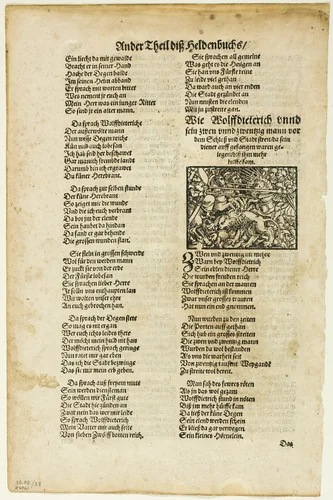 Ander Theil diß Heldenbuchs/
Ein liecht da mit gewalde
Bracht er in seiner Hand
Hache der Degen balde
Jm seinen Helm abband
Er sprach mit worten bitter
Wes nement jr euch an
Mein Herr was ein junger Ritter
So sind jr ein alter mann.
Da sprach Wolffdieterich
Der außerwölte mann
Nun wisse Degen reiche
Kün und auch lobesan
Jch hab seid her beschawet
Gar manich frembde landt
Harumb bin ich ergrawet
Du küner Herebrant.
Da sprach zur selben stunde
Der küne Herebrant
So zeiget mir die wunde
Und die ich euch verbrant
Da bot jm der elende
Sein haubet da hindan
Da fand er gar behende
Die grossen wunden stan.
Sie fieln in grossen schwerde
Wol für den werden mann
Er zuckt sie von der erde
Der Fürste lobesan
Sie sprachen lieber Herre
Jr sollen uns enthaupten lan
Wir wolten unser ehre
An euch gebrochen han.
Da sprach der Degen stete
So mag es nit ergan
Wer euch ichts leides thete
Der möcht mein huld nit han
Wolffdieterich sprach geringe
Nun ratet mir gar eben
Das ich die Stadt bezwinge
Das sie mir mein erb geben.
Da sprach auß freyem mute
Sein werden dienstman
So wöllen wir Fürst gute
Die Stadt hie zünden an
Zwar nein das wer mir leide
So sprach Wolffdieterich
Mein Vatter mir auch seite
Von sieben Zwölff botten reich,
Sie sprachen all gemeine
Was geht es die Heilgen an
Sie han uns Fürste reine
Zu leide viel gethan
Da ward auch an vier enden
Die Stadt gezündet an
Nun musten die elenden
Mit jn zu streite gan.
Wie Wolffdieterich unnd
sein zwen unnd zwentzig mann vor
dem Schloß und Stadt streit, da sein
diener auff gefangen waren ge-
legen und jhm mehr
hülff kam.
ZWen und zwentzig nit mehre
Warn bey Wolffdieterich
Sein elden diener Herre
Die wurden freuden reich
Sie sprachen an der mauren
Wolffdieterich ist kummen
Zwar unser grosses trauren
Hat nun ein end gnommen.
Nun wurden zu den zeiten
Die Porten auff gethan
Sich hub ein grosses streiten
Die zwen und zwentzig mann
Wurden da wol bestanden
Als uns die warheit seit
Von zwentzig tausent Weygande
Zu streite wol bereit.
Man sah des fewres röten
Als jn das wol gezam
Wolffdieterich stund in nöten
Biß jm mehr hülffe kam
Da ließ der küne Degen
Sein elend werden schein
Er bließ da gar verwegen
Sein kleines Hörnelein.
Das